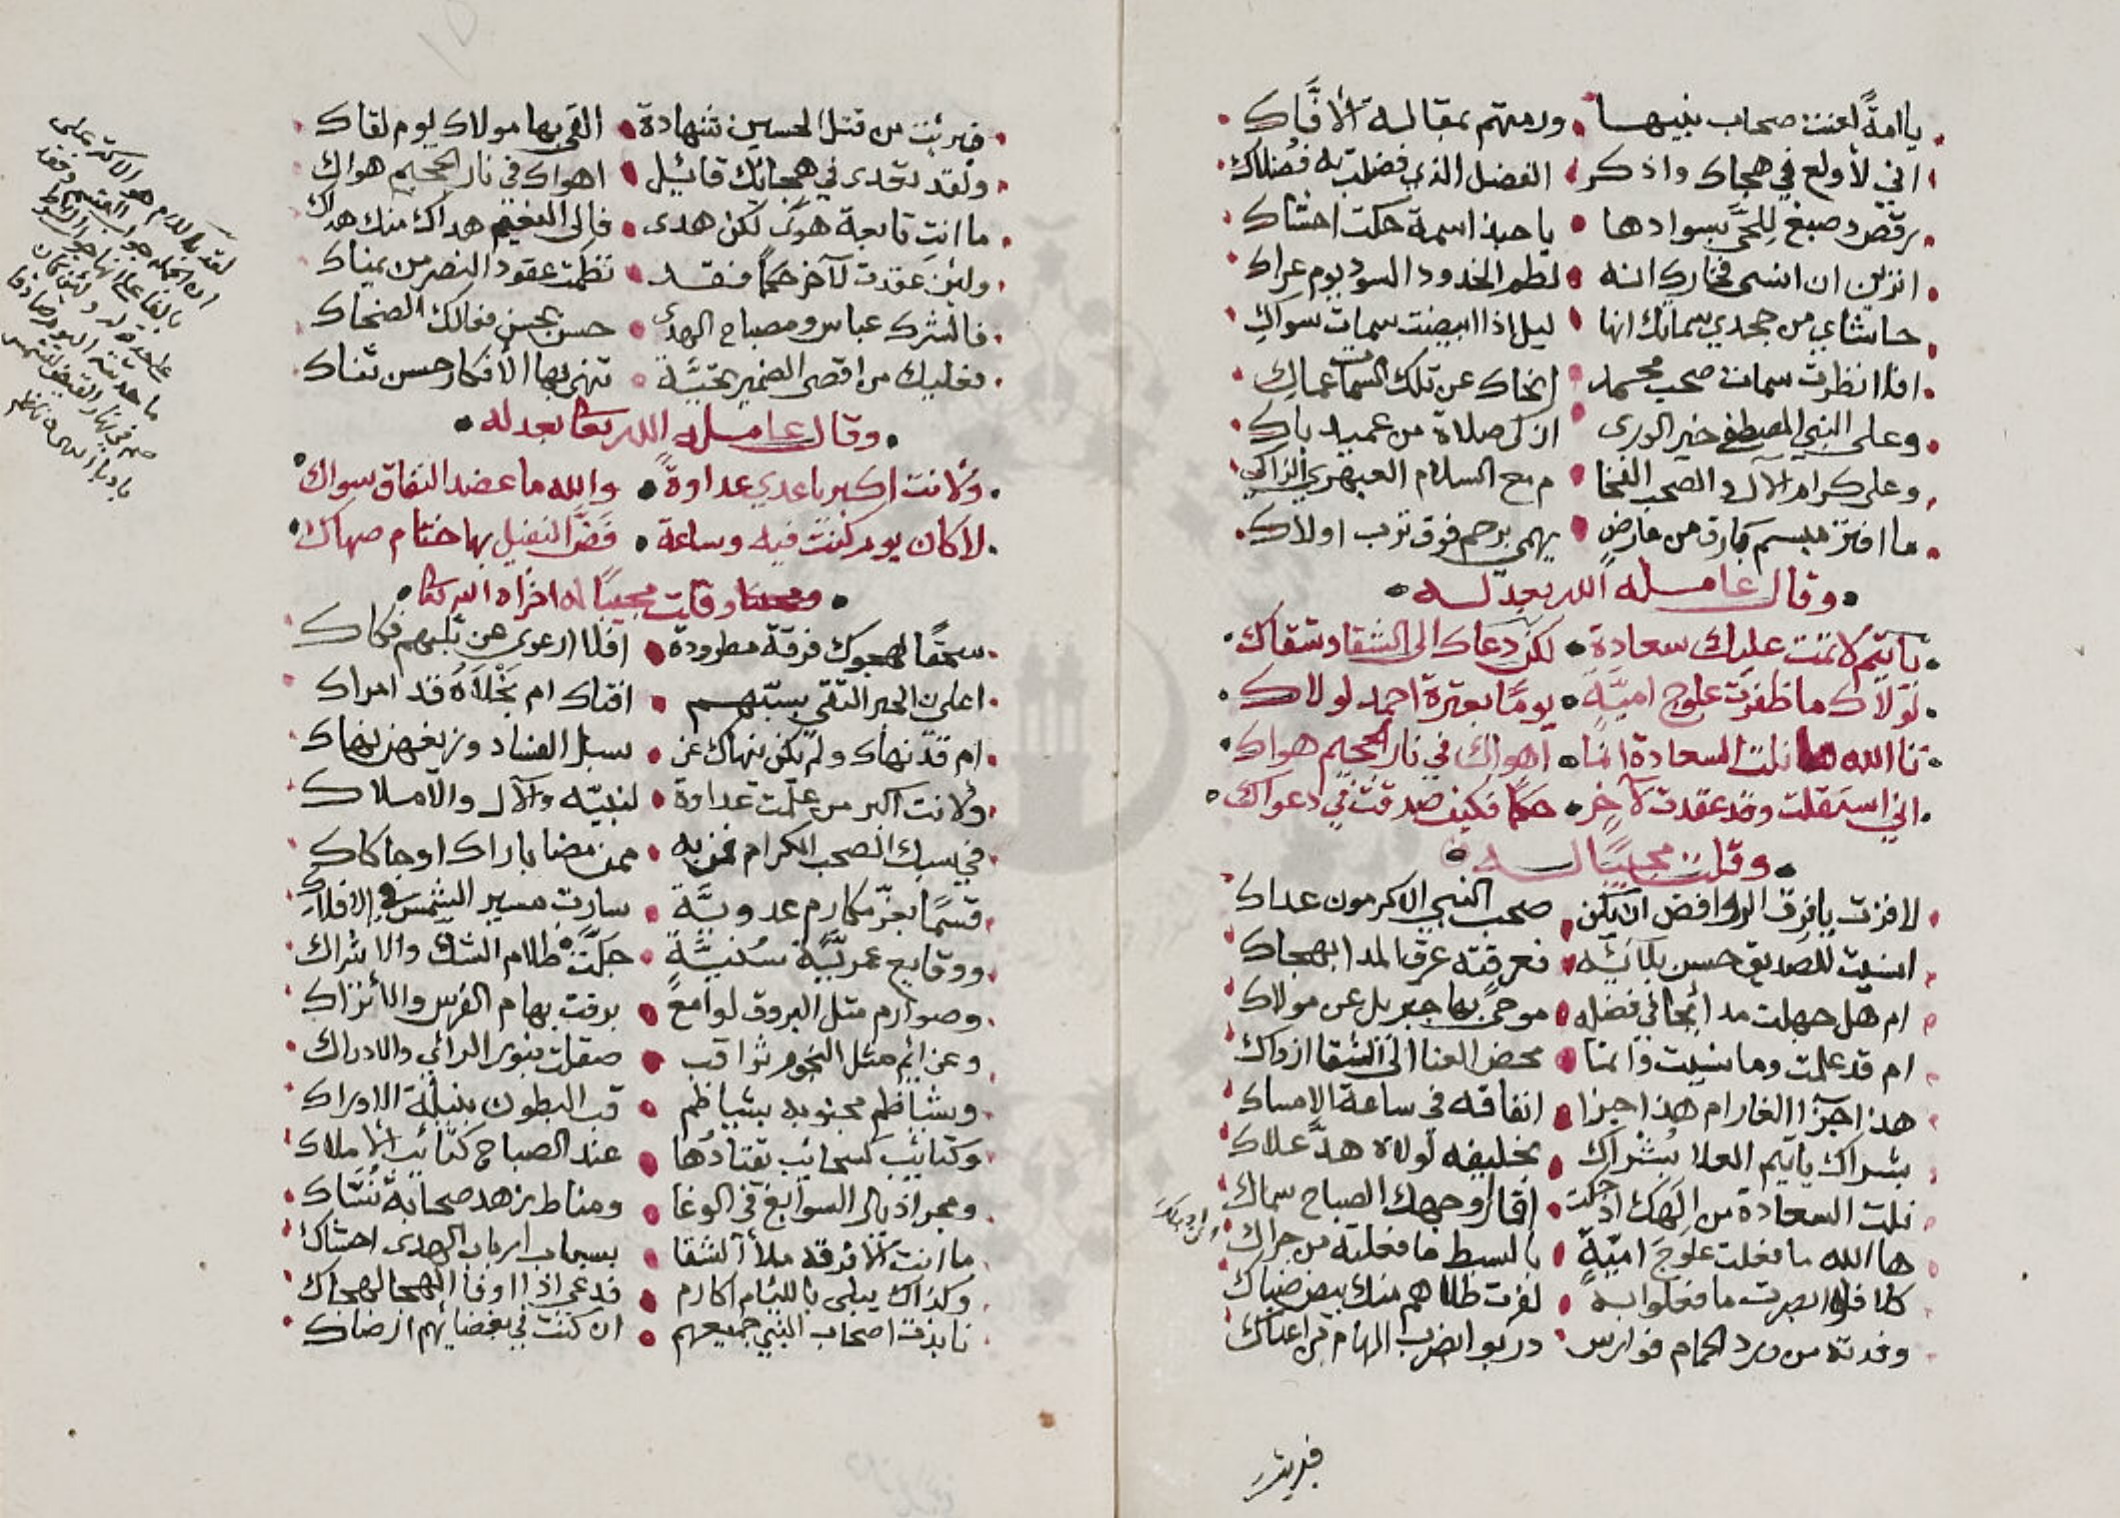 يا امةً لعنت صحاب نبيها ورمتهم بمقالة الافّاك
اني لأولع في هجاك واذكر الفضل الذي فضلت به فضلاك
برقص وصبغ للحى بسوادها يا حبذا سمة حكت احشاك
اتزين ان اضحى فخارك انه لطم الخدود السود يوم عراك
حاشاي من جحدي سماتك انها ليل اذا ابيضت سمات سواك
افلا نظرت سمات صحب محمد انحاك عن تلك السمات عماك
وعلى النبي المصطفى خير الورى ازكى صلاة من عبيد باك
وعلى كرام الآل والصحب الفخا م مع السلام العبهري الزاكي
ما افتر مبسم بارق من عارض يهمي برحم فوق ترب اولاك
وقال عامله الله بعدله
يا تيم لا تمت عليك سعادة لكن دعاك الى الشقا وشقاك
لولاك ما ظفرت علوج امية يومًا بعترة احمد لولاك
تا الله ما نلت السعادة انما اهواك في نار الجحيم هواك
اني استقلت وقد عقدت لآخر حكمًا فكيف صدقت في دعواك
وقلت مجيبًا له
لا فزت يا فرق الروافض ان يكن صحب النبي الاكرمون عداك
انسيت للصديق حسن بلائه فعرقته عرق المدا بهجاك
ام هل جهلت مدائحًا في فضله موحى بها جبريل عن مولاك
ام قد علمت وما نسيت وانما محض العنا الى الشقا ازواك
هذا جزا الغار ام هذا جزا انفاقه في ساعة الامساك
بشراك يا تيم العلا بشراك بخليفه لولاه هدّ علاك
نلت السعادة من الهك اذ حكت اقمار وجهك الصباح سماك
ها الله ما فعلت علوج امية بالسبط ما فعلته من جراك
كلا فلو ابصرت ما فعلوا به لفرت طلاهم منك بيض ضباك
وفدته من ورد الحمام فوارس دربوا لضرب الهام من اعداك
فبريت
فبرئت من قتل الحسين شهادة القى بها مولاك يوم لقاك
ولقد تعدى في هجائك قائيل اهواك في نار الجحيم هواك
ما انت تابعة هوى لكن هدى فالى النعيم هداك منك هداك
ولئن عقدت لآخر حكمًا فقد نظمت عقود النصر من يمناك
فالشرك عباس ومصباح الهدى حسن بحسن فعالك الضحاك
فعليك من اقصى الضمير تحيّة تزهى بها الأفكار حسن ثناك
وقال عامله الله تعا بعدله
ولانت اكبر يا عدي عداوة والله ما عضد النفاق سواك
لا كان يوم كنت فيه وساعة فضّ النفيل بها ختام صهاك
وقلت مجيبًا له اخزاه الله تعا
سحقًا لهجوك فرقة مطرودة افلا ارعوى عن ثلبهم فكاك
اعلي الحبر التقي بسبّهم افتاك ام نجلاه قد امراك
ام قد نهاك ولم تكن ينهاك عن سبل الفساد وزيغهن نهاك
ولانت اكبر من علمت عداوة لنبيّه والآل والاملاك
في سبك الصحب الكرام فمن به ممن مضا باراك او حاكاك
قسمًا بعزّ مكارم عدويّة سارت مسير الشمس في الافلاك
ووقايع عمريّة سُنيّة جلّت ظلام الشك والاشراك
وصوارم مثل البروق لوامع برقت بهام الفرس والأتراك
وعزائم مثل النجوم ثواقب صقلت بنور الرائي والادراك
وشياظم مجنوبة بشياظم قب البطون نبيلة الاوراك
وكتائب كسحائب تقتادها عند الصباح كتائب الاملاك
ومجر اذيال السوابغ في الوغا ومناط زهد صحابة نسّاك
ما انت الا فرقة ملأ الشقا بسباب ارباب الهدى احشاك
وكذاك يبلى باللئام اكارم فدعي اذا اوفا الهجا لهجاك
نابذت اصحاب النبي جميعهم ان كنت في بغضائهم ارضاك